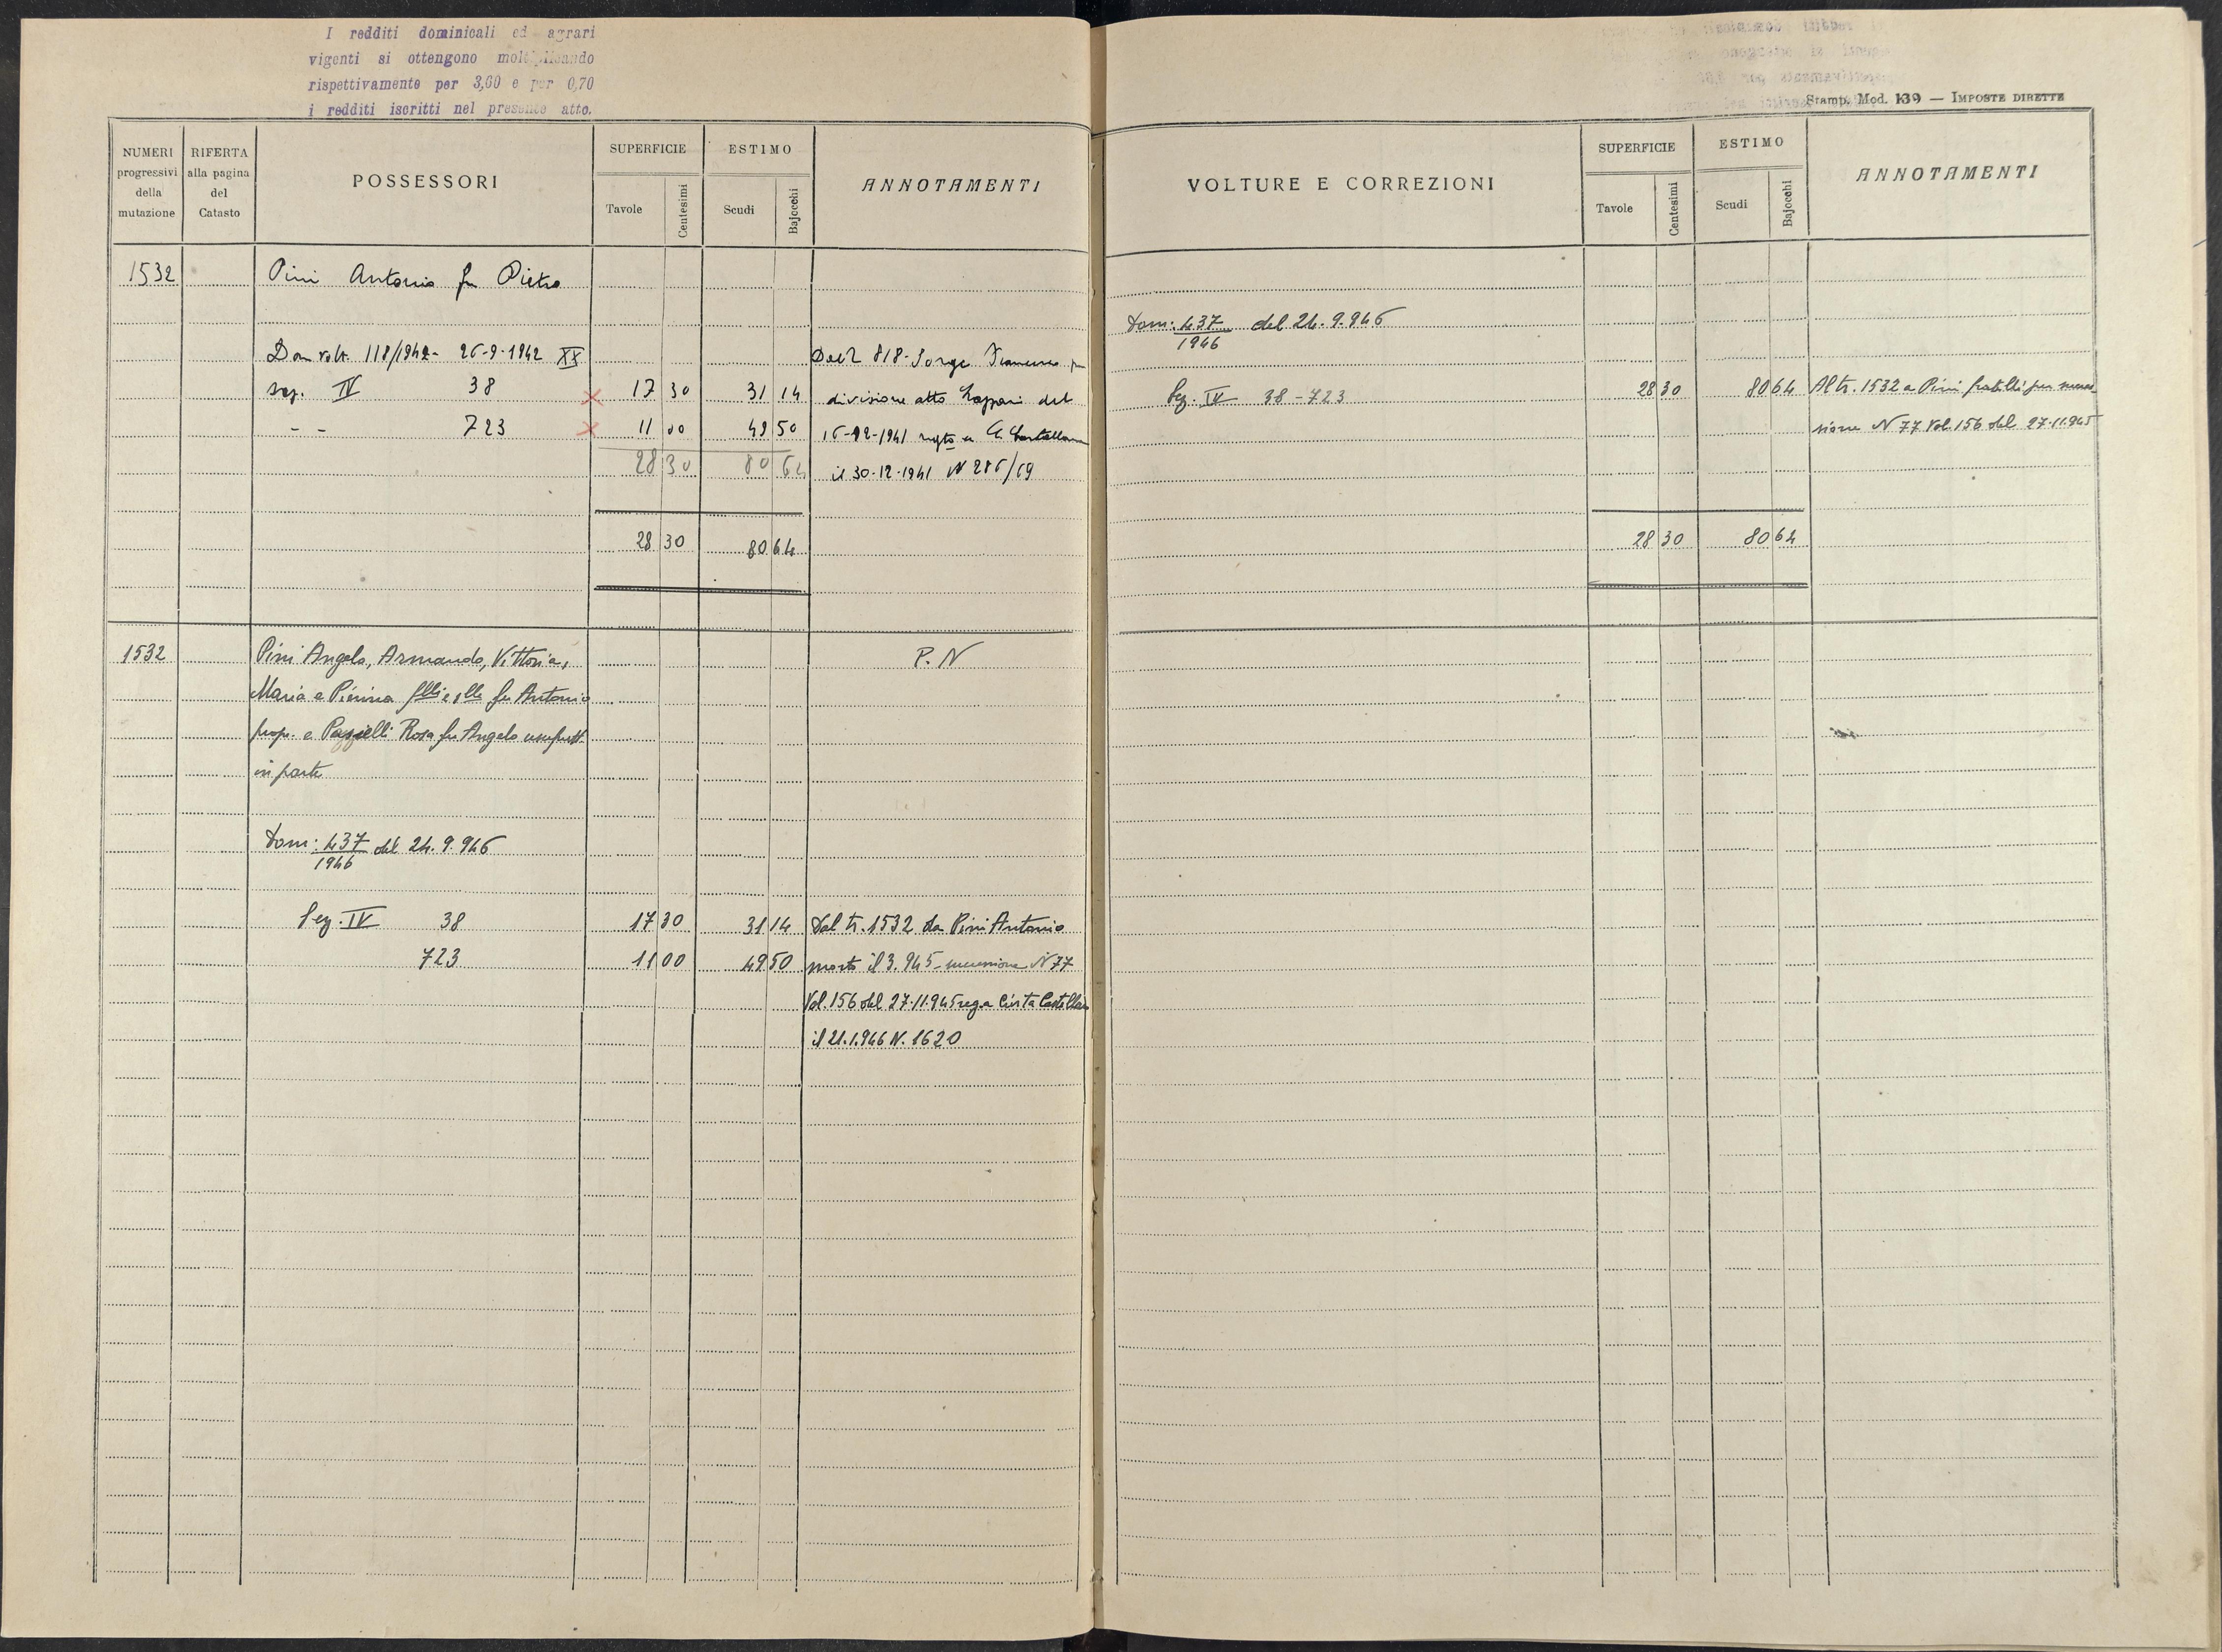 I redditi dominicali ed agrari
vigenti si ottengono moltiplicando
rispettivamente per 3,60 e per 0,70
i redditi iscritti nel presente atto.
NUMERI progressivi della mutazione
RIFERTA alla pagina del Catasto
POSSESSORI
SUPERFICIE
Tavole
Centesimi
ESTIMO
Scudi
Bajocchi
ANNOTAMENTI
1532 Pini Antonio fu Pietro
Dom volt. 118/1942 - 26-9-1942 XX Dall 818 - Francesco
sez. IV 38 17 30 31 14 divisione atto del
- - 723 11 00 49 50 12-1941 a C. Castellana
28 30 80 64 il 30-12-1941 N
28 30 80 64
1532 Pini Angelo, Armando, Vittoria, P. N
Maria e Pierina flli e slle fu Antonio
prop. e Rosa fu Angelo usufrutt.
in parte
Dom: 437/1946 del 24.9.946
Sez. IV 38 17 30 31 14 Dal tr. 1532 da Pini Antonio
723 11 00 49 50 morto il 3.945 - successione N 77
Vol. 156 del 27.11.945 reg. a Civita Castellana
il 21.1.946 N. 1620
Stamp. Mod. 139 — IMPOSTE DIRETTE
VOLTURE E CORREZIONI
SUPERFICIE
Tavole
Centesimi
ESTIMO
Scudi
Bajocchi
ANNOTAMENTI
Dom: 437/1946 del 24.9.946
Sez. IV 38 - 723 28 30 80 64 Al tr. 1532 a Pini fratelli per succes-
sione N 77 Vol. 156 del 27.11.945
28 30 80 64